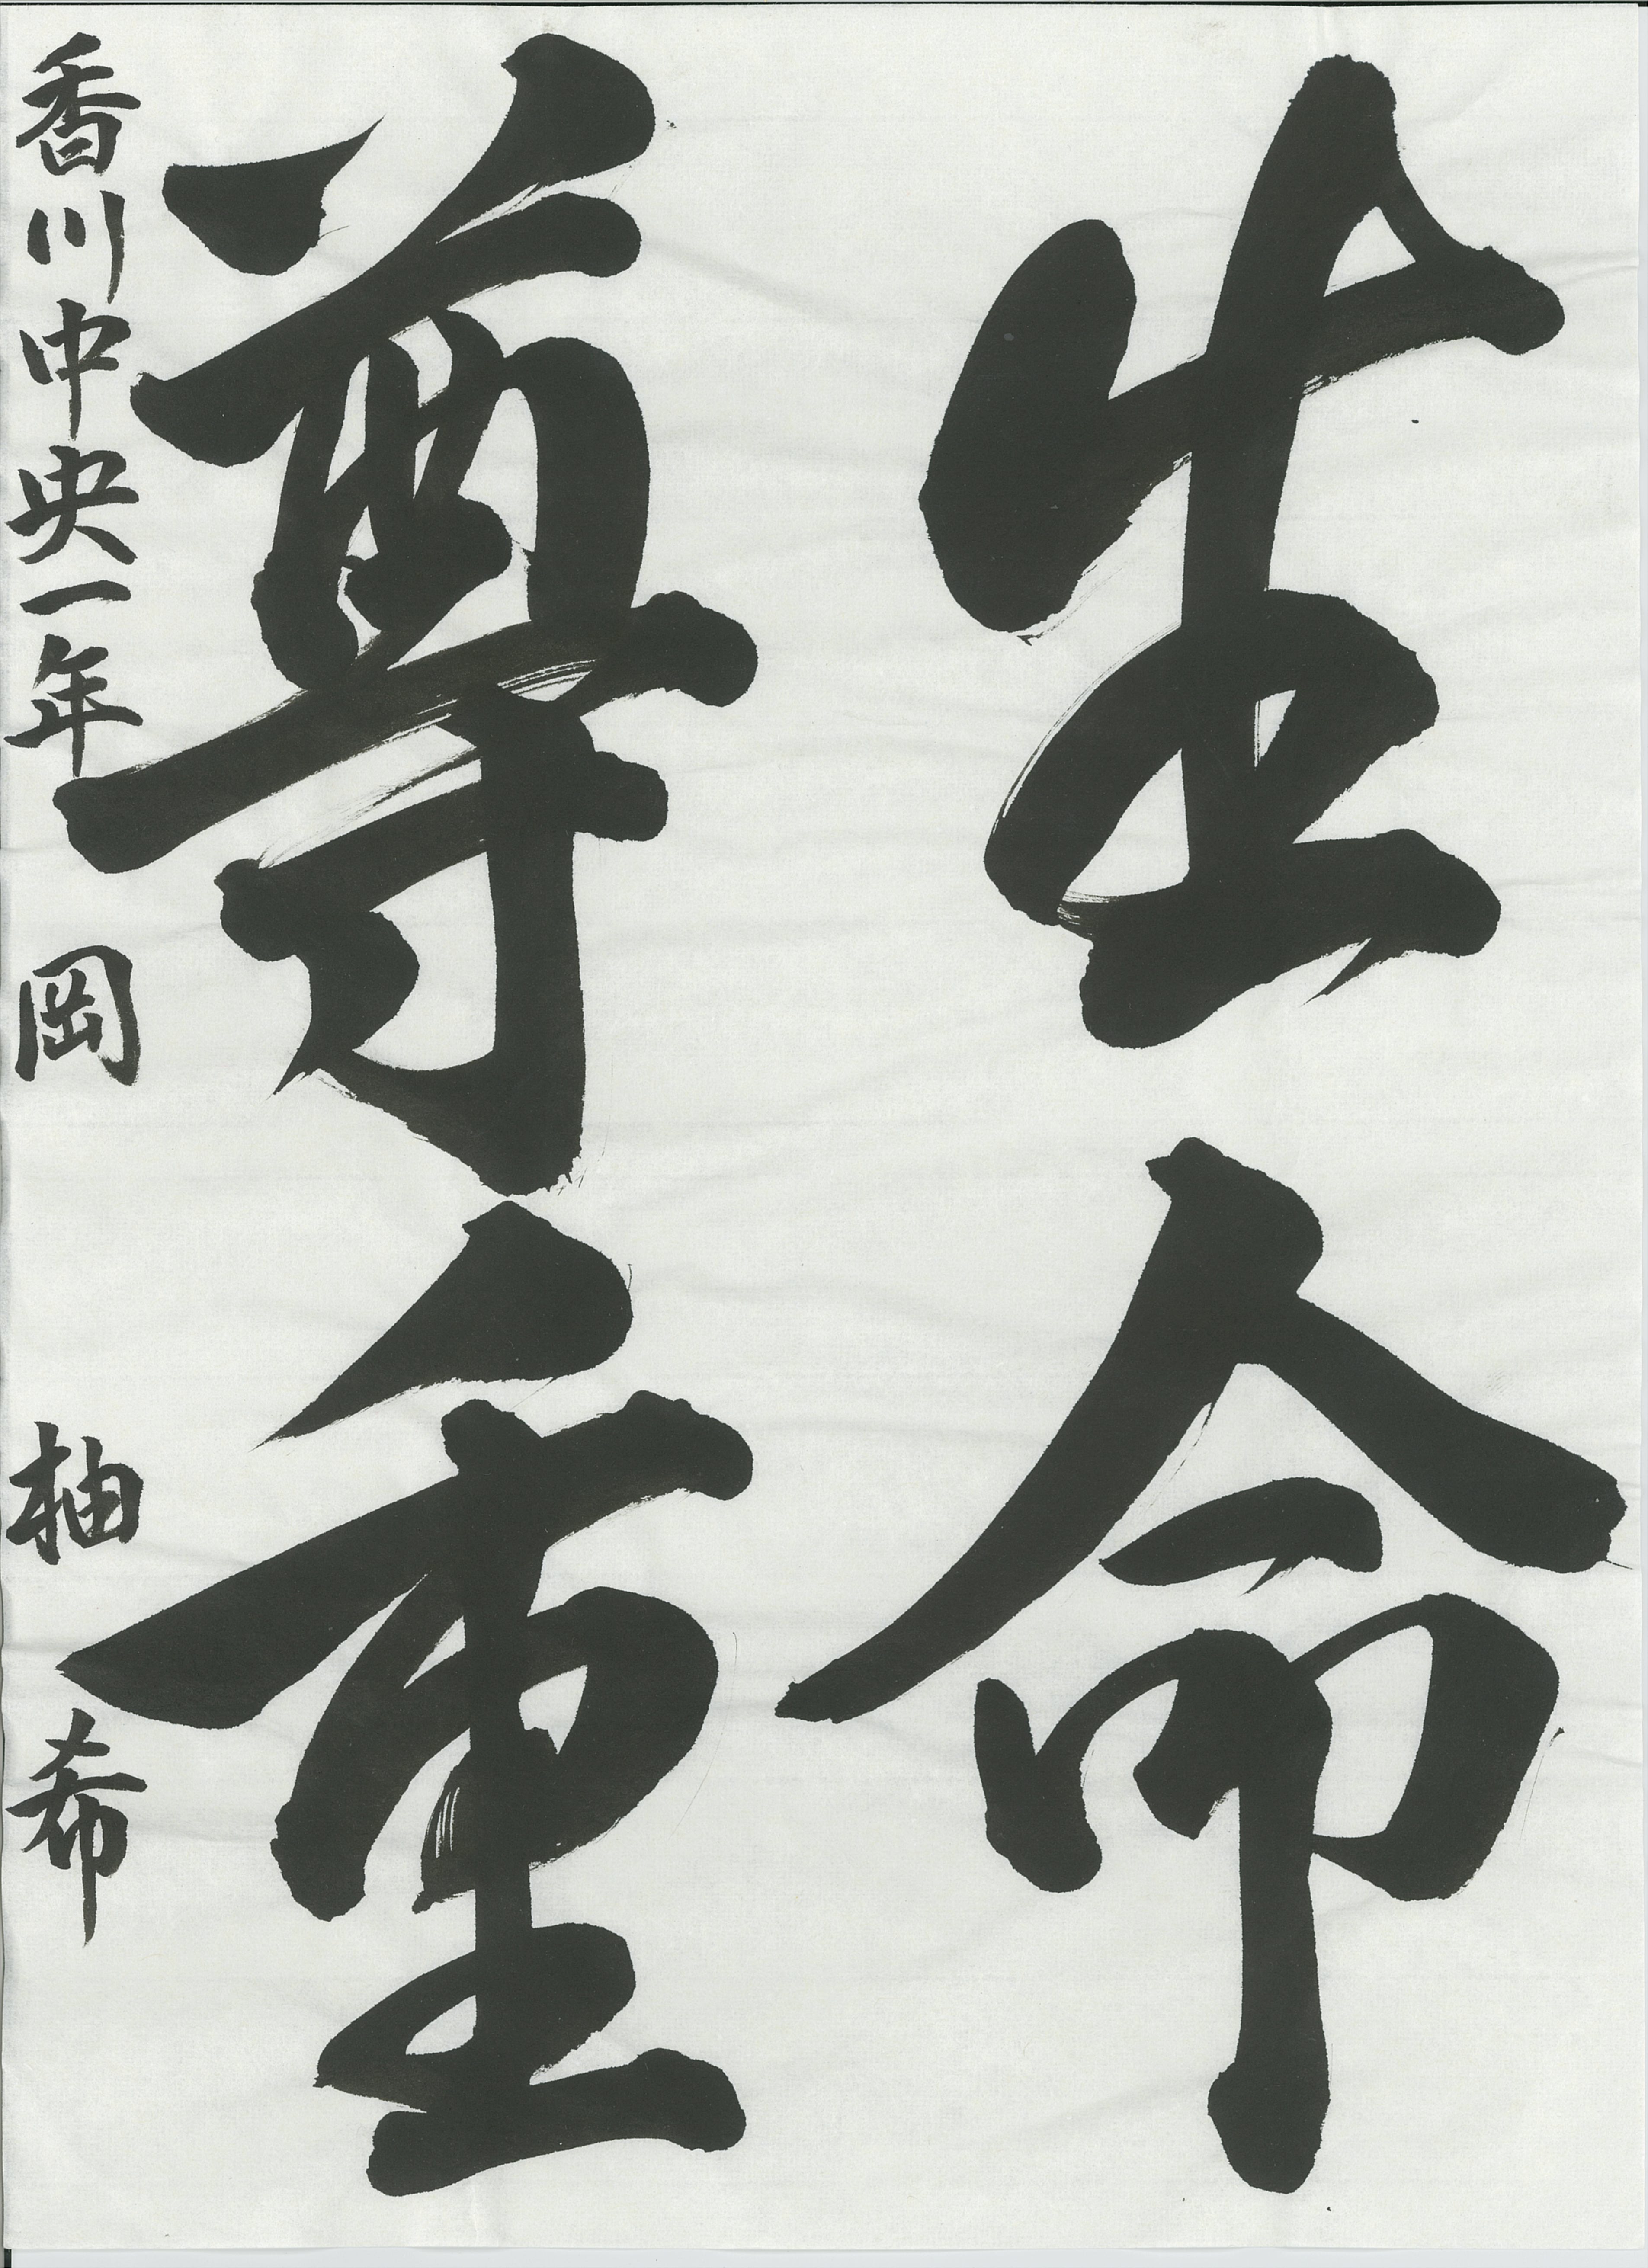 生命
尊重
香川中央一年 岡 柚希